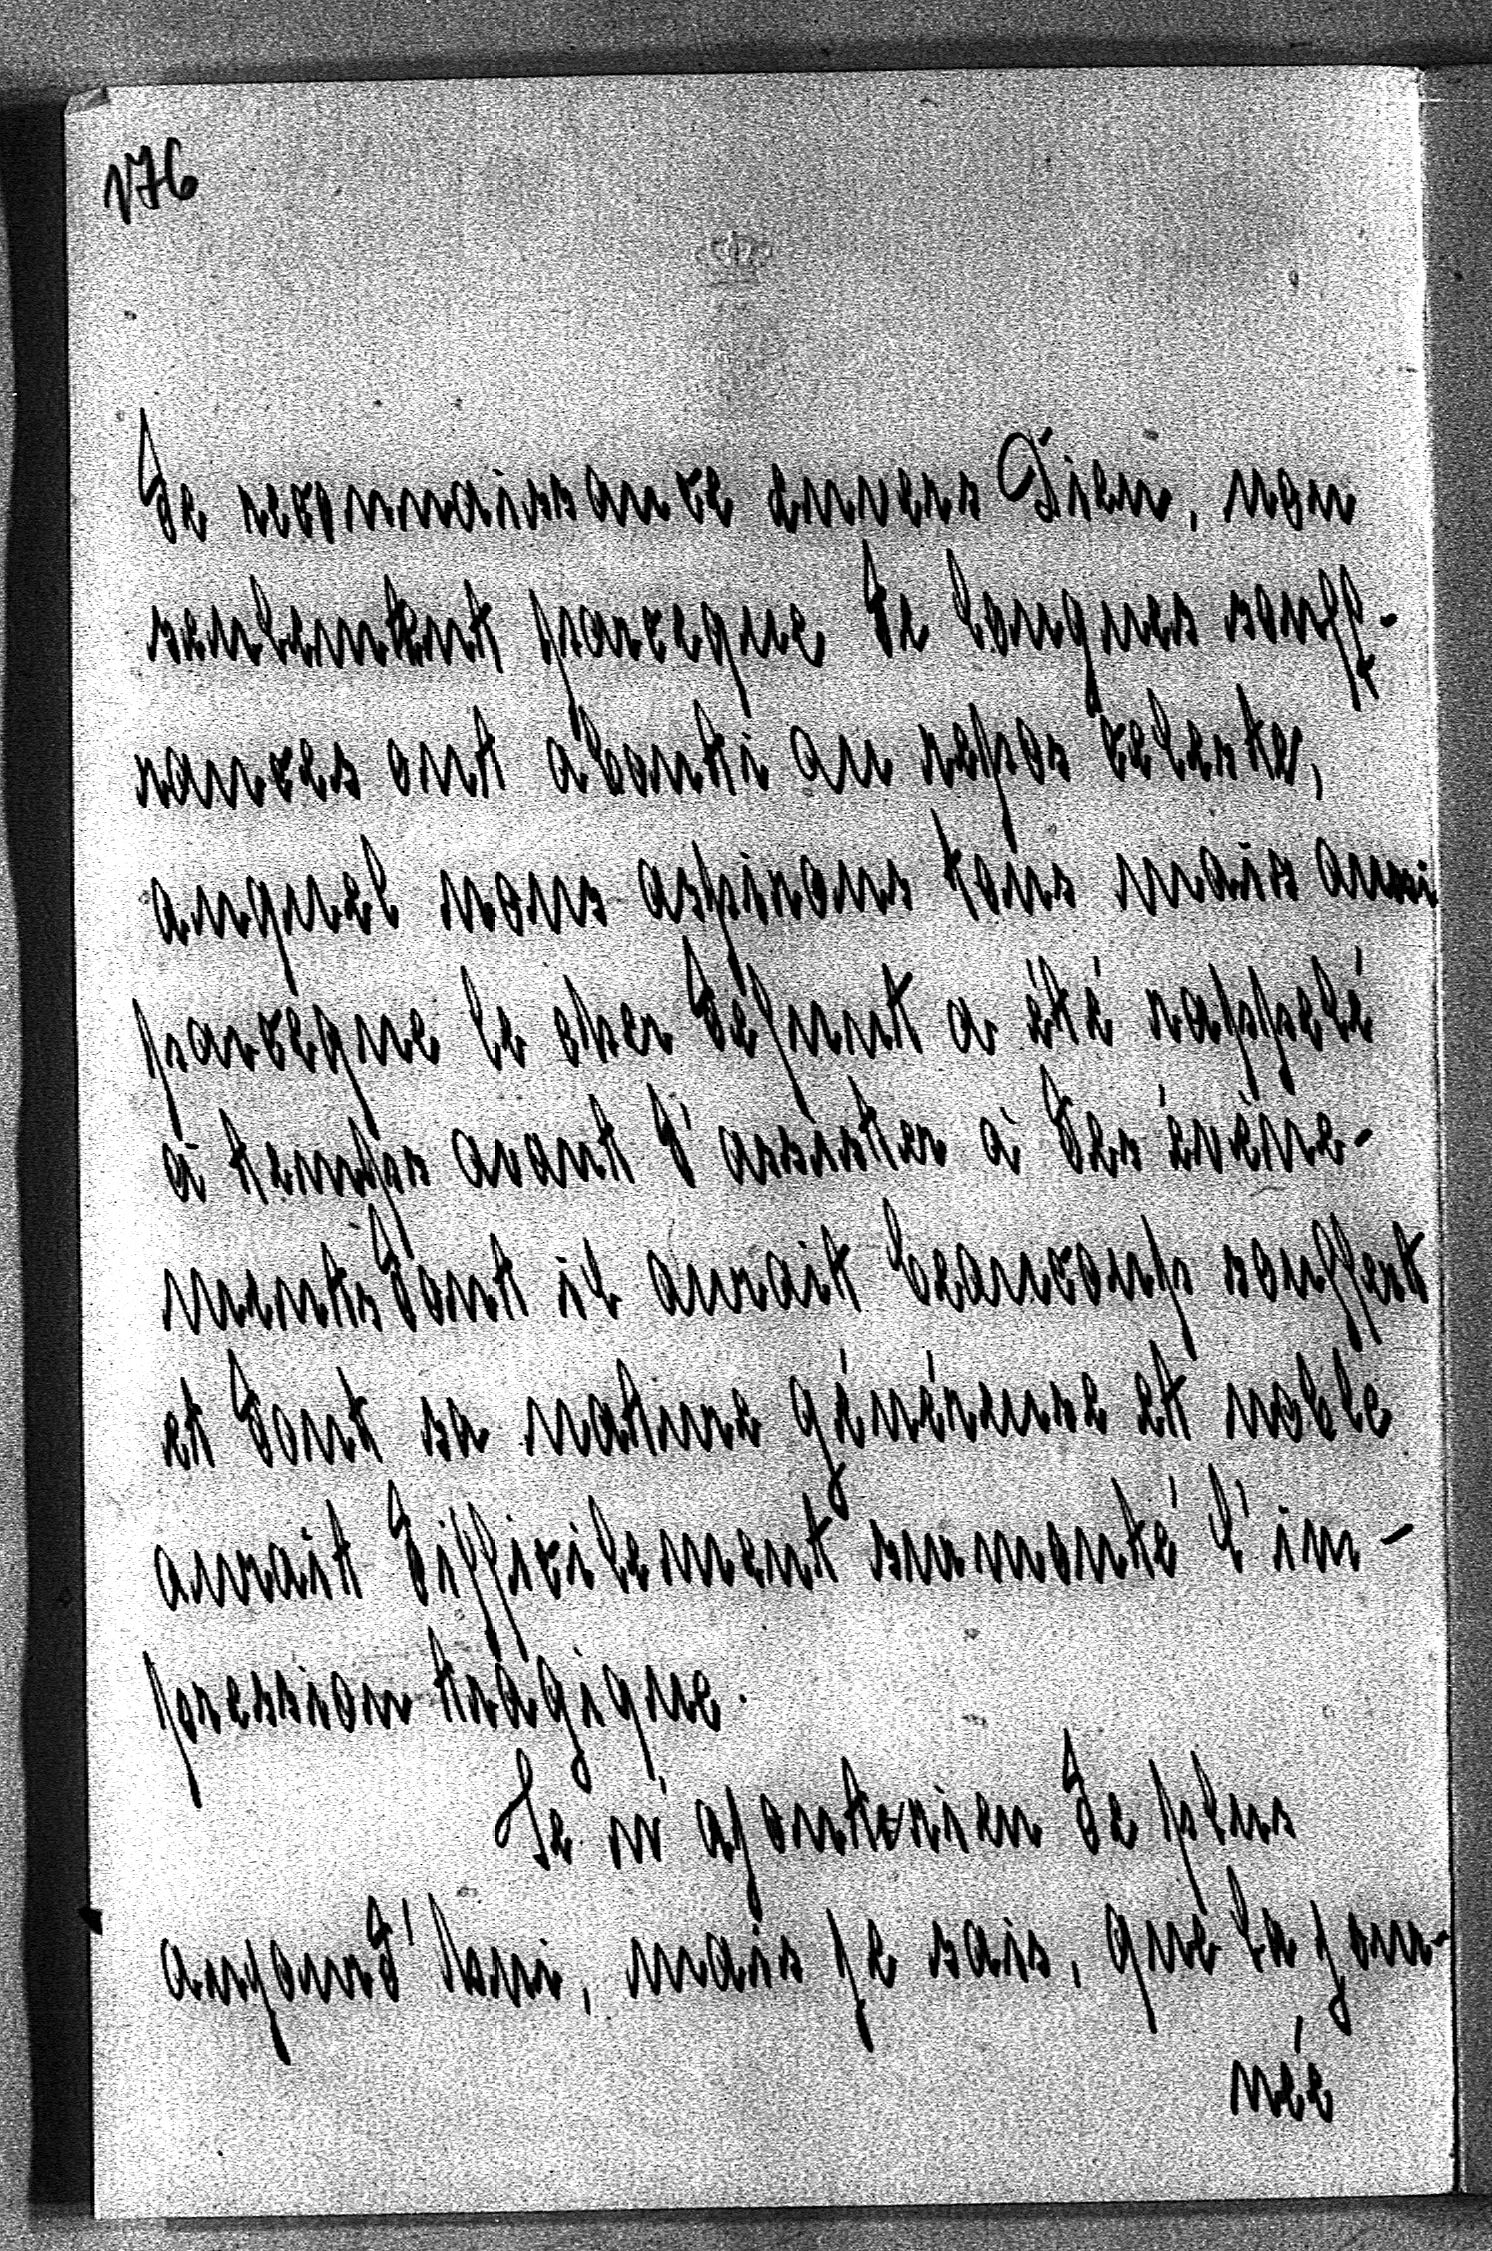 176
de reconnaissance envers Dieu, non
seulement parceque de longues souff-
rances ont abouti au repos celeste,
auquel nous aspirons tous mais aussi
parceque le cher défunt a été rappelé
à temps avant d'assister à des événe-
ments dont il aurait beaucoup souffert
et dont sa nature généreuse et noble
aurait difficilement surmonté l'im-
pression tragique.
Je n'ajouterien de plus
aujourd'hui, mais je sais, que la jour-
née